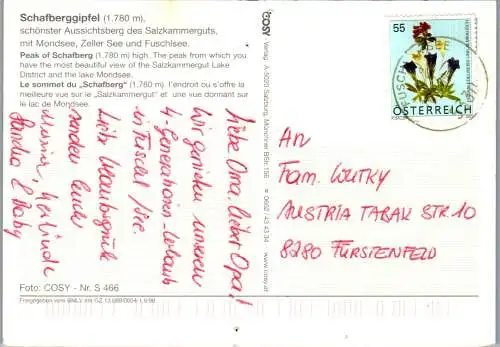 Schafberggipfel (1.780 m),
schönster Aussichtsberg des Salzkammerguts,
mit Mondsee, Zeller See und Fuschlsee.
Peak of Schafberg (1.780 m) high. The peak from which you
have the most beautiful view of the Salzkammergut Lake
District and the lake Mondsee.
Le sommet du „Schafberg" (1.780 m) l'endroit ou s'offre la
meilleure vue sur le „Salzkammergut" et une vue dormant sur
le lac de Mondsee.
Liebe Oma, lieber Opa!
Wir genießen unseren
4-Generations-Urlaub
in Fuschl/See.
Liebe Urlaubsgrüße
senden Euch
Sandra & Baby
Foto: COSY - Nr. S 466
COSY Verlag · A-5020 Salzburg,
0662 / 43 43 34 www.cosy.at
COSY
55
ÖSTERREICH
FUSCHL
AN
FAM. WUTKY
AUSTRIA TABAK STR. 10
8280 FÜRSTENFELD